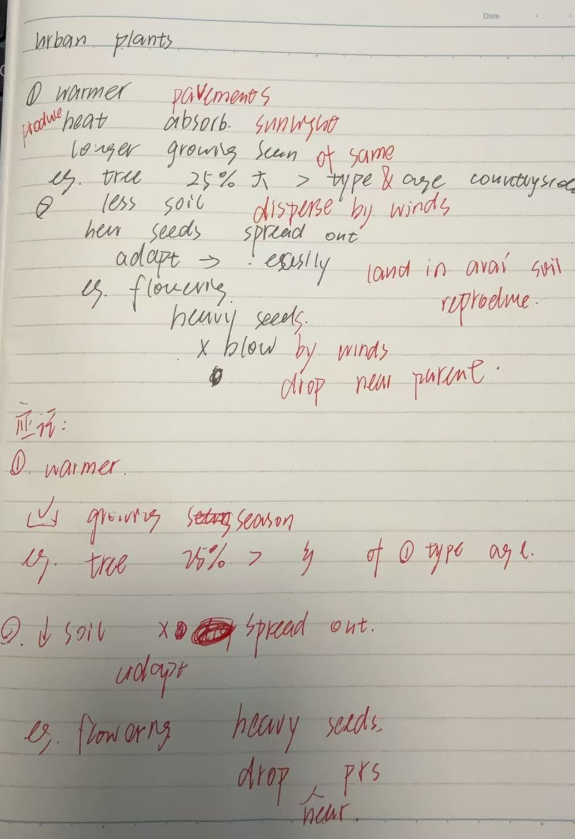 Date
urban plants
① warmer pavements
produce heat absorb. sunlight
longer growing seen of same
eg. tree 25% 大 > type & age countryside
② less soil disperse by winds
new seeds spread out
adapt → easily land in avai soil
eg. flowering reprodme.
heavy seeds.
x blow by winds
drop near parent.
应该:
①. warmer.
growing season
eg. tree 25% > of ① type age.
②. ↓ soil x spread out.
adapt
eg. flowerng heavy seeds.
drop prs
near.